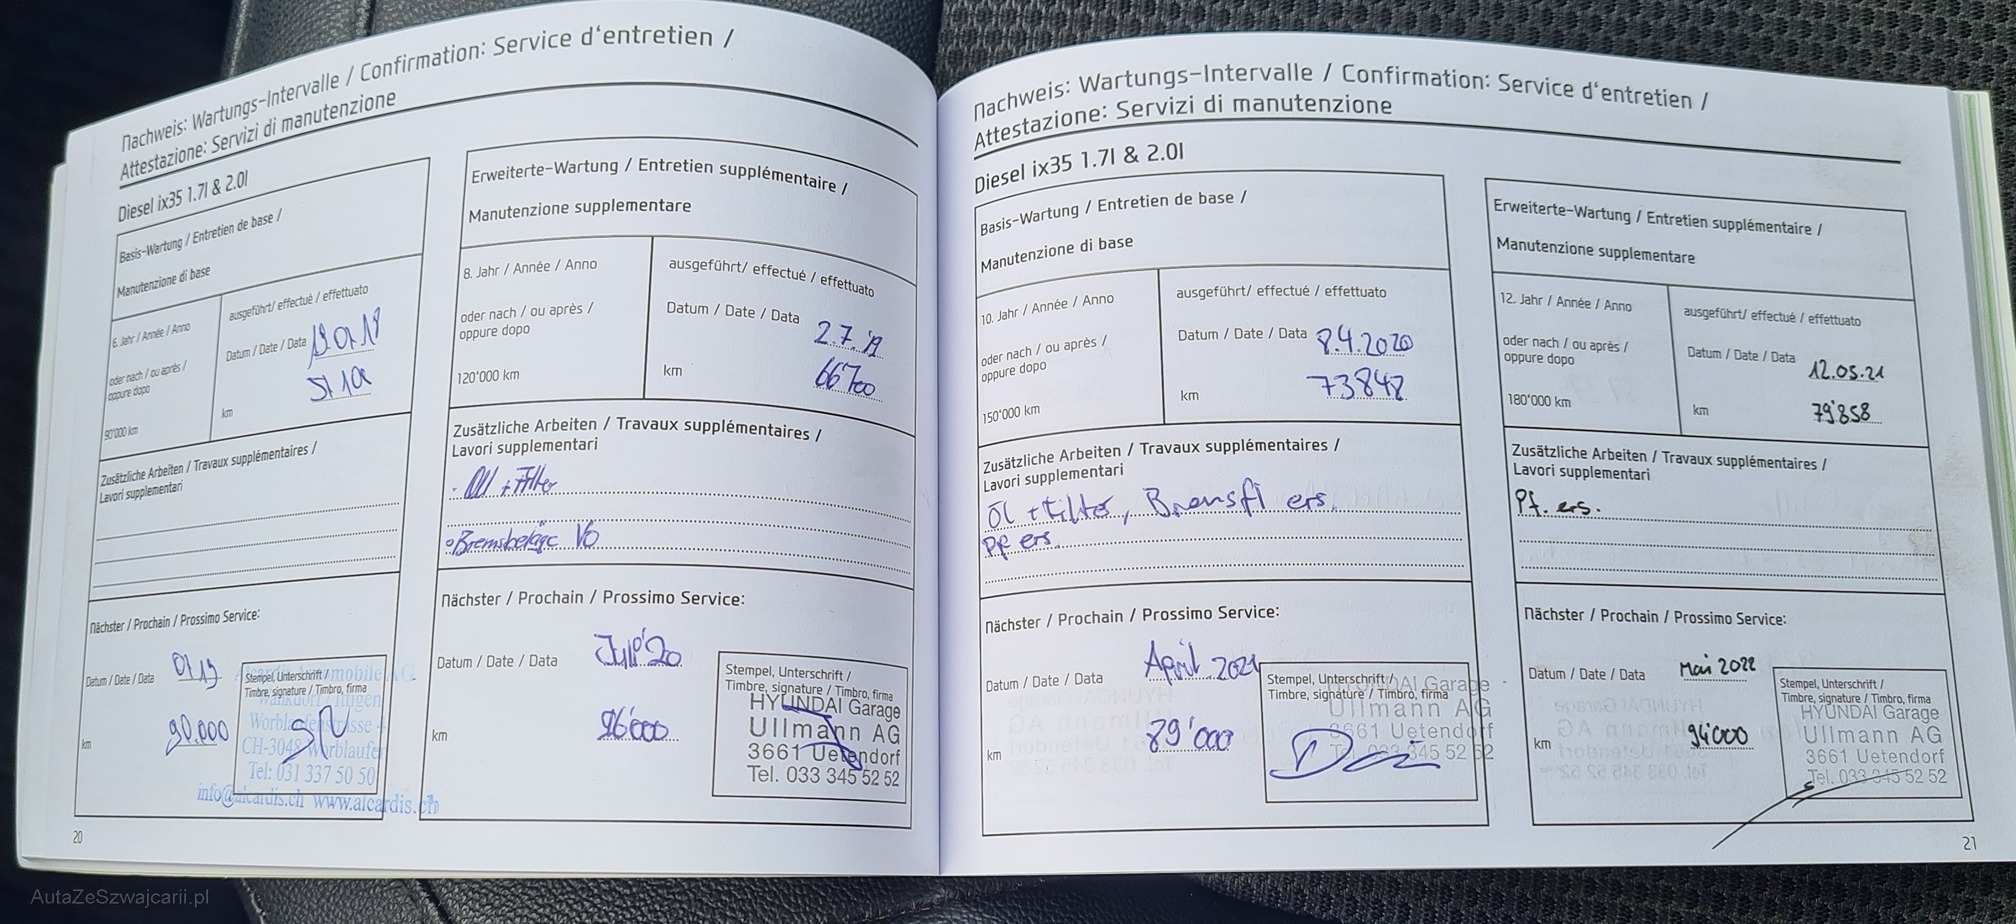 Nachweis: Wartungs-Intervalle / Confirmation: Service d'entretien /
Attestazione: Servizi di manutenzione
Diesel ix35 1.7l & 2.0l
Basis-Wartung / Entretien de base /
Manutenzione di base
6. Jahr / Année / Anno
oder nach / ou après /
oppure dopo
90'000 km
ausgeführt/ effectué / effettuato
Datum / Date / Data
km
Zusätzliche Arbeiten / Travaux supplémentaires /
Lavori supplementari
Nächster / Prochain / Prossimo Service:
Datum / Date / Data 01.19
km 90.000
Stempel, Unterschrift /
Timbre, signature / Timbro, firma
CH-3048 Worblaufen
Tel: 031 337 50 50
info@alcardis.ch www.alcardis.ch
20
Erweiterte-Wartung / Entretien supplémentaire /
Manutenzione supplementare
8. Jahr / Année / Anno
oder nach / ou après /
oppure dopo
120'000 km
ausgeführt/ effectué / effettuato
Datum / Date / Data 2.7.'19
km 66700
Zusätzliche Arbeiten / Travaux supplémentaires /
Lavori supplementari
Öl + Filter
Bremsbeläge Vo
Nächster / Prochain / Prossimo Service:
Datum / Date / Data Juli '20
km 96'000
Stempel, Unterschrift /
Timbre, signature / Timbro, firma
HYUNDAI Garage
Ullmann AG
3661 Uetendorf
Tel. 033 345 52 52
Nachweis: Wartungs-Intervalle / Confirmation: Service d'entretien /
Attestazione: Servizi di manutenzione
Diesel ix35 1.7l & 2.0l
Basis-Wartung / Entretien de base /
Manutenzione di base
10. Jahr / Année / Anno
oder nach / ou après /
oppure dopo
150'000 km
ausgeführt/ effectué / effettuato
Datum / Date / Data 8.4.2020
km 73848
Zusätzliche Arbeiten / Travaux supplémentaires /
Lavori supplementari
Öl + Filter, Bremsfl ers.
PF ers.
Nächster / Prochain / Prossimo Service:
Datum / Date / Data April 2021
km 89'000
Stempel, Unterschrift /
Timbre, signature / Timbro, firma
HYUNDAI Garage
Ullmann AG
3661 Uetendorf
Tel. 033 345 52 52
Erweiterte-Wartung / Entretien supplémentaire /
Manutenzione supplementare
12. Jahr / Année / Anno
oder nach / ou après /
oppure dopo
180'000 km
ausgeführt/ effectué / effettuato
Datum / Date / Data 12.05.21
km 79'858
Zusätzliche Arbeiten / Travaux supplémentaires /
Lavori supplementari
Pf. ers.
Nächster / Prochain / Prossimo Service:
Datum / Date / Data Mai 2022
km 94'000
Stempel, Unterschrift /
Timbre, signature / Timbro, firma
HYUNDAI Garage
Ullmann AG
3661 Uetendorf
Tel. 033 345 52 52
21
AutaZeSzwajcarii.pl